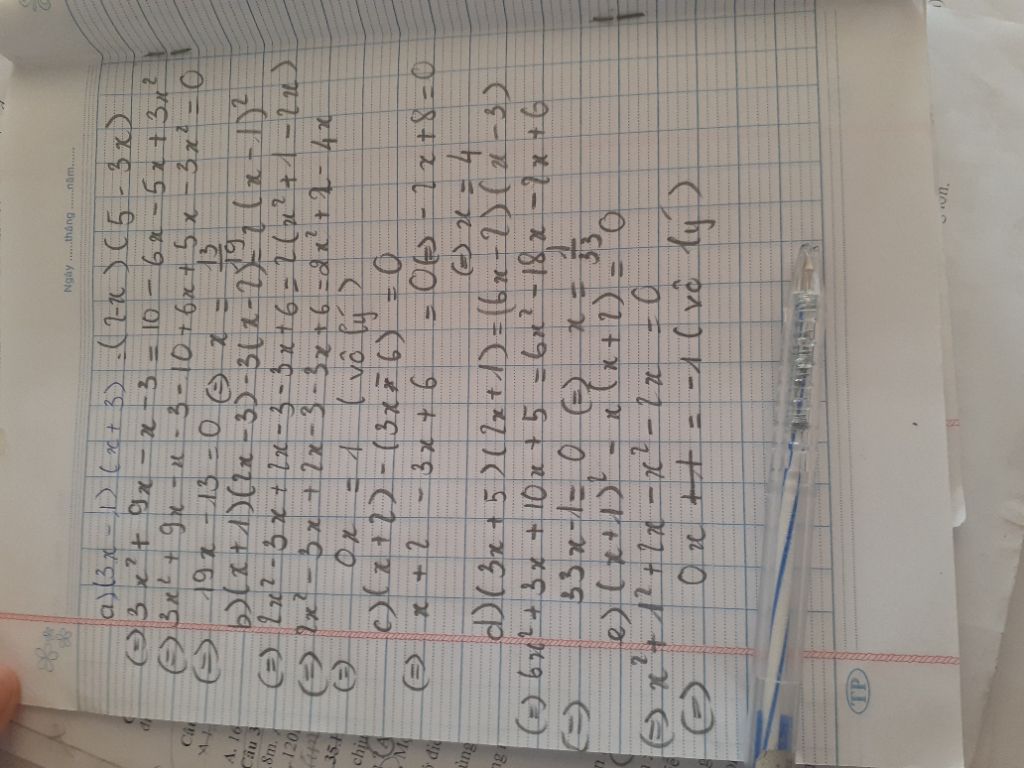 Ngày ......tháng ......năm......
a) (3x - 1) (x + 3) = (2-x) (5 - 3x)
(=) 3x² + 9x - x - 3 = 10 - 6x - 5x + 3x²
(=) 3x² + 9x - x - 3 - 10 + 6x + 5x - 3x² = 0
(=) 19x - 13 = 0 (=) x = 13/19
b) (x + 1) (2x - 3) - 3(x - 2) = 2 (x - 1)²
(=) 2x² - 3x + 2x - 3 - 3x + 6 = 2 (x² + 1 - 2x)
(=) 2x² - 3x + 2x - 3 - 3x + 6 = 2x² + 2 - 4x
(=) 0x = 1 (vô lý)
c) (x + 2) - (3x - 6) = 0
(=) x + 2 - 3x + 6 = 0 (=) - 2x + 8 = 0
(=) x = 4
d) (3x + 5) (2x + 1) = (6x - 2) (x - 3)
(=) 6x² + 3x + 10x + 5 = 6x² - 18x - 2x + 6
(=) 33x - 1 = 0 (=) x = 1/33
e) (x + 1)² - x (x + 2) = 0
(=) x² + 1² + 2x - x² - 2x = 0
(=) 0x = - 1 (vô lý)
TP